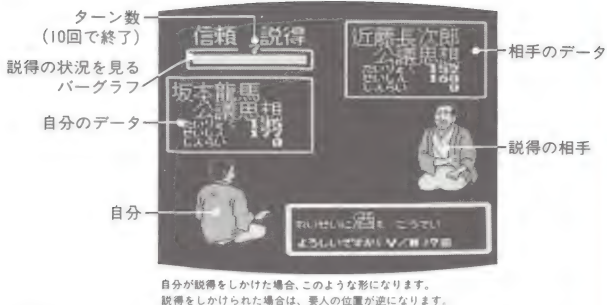 ターン数
(10回で終了)
説得の状況を見る
バーグラフ
自分のデータ
自分
相手のデータ
説得の相手
信頼 説得
近藤長次郎
公議思想
坂本龍馬
公議思想
自分が説得をしかけた場合、このような形になります。
説得をしかけられた場合は、要人の位置が逆になります。